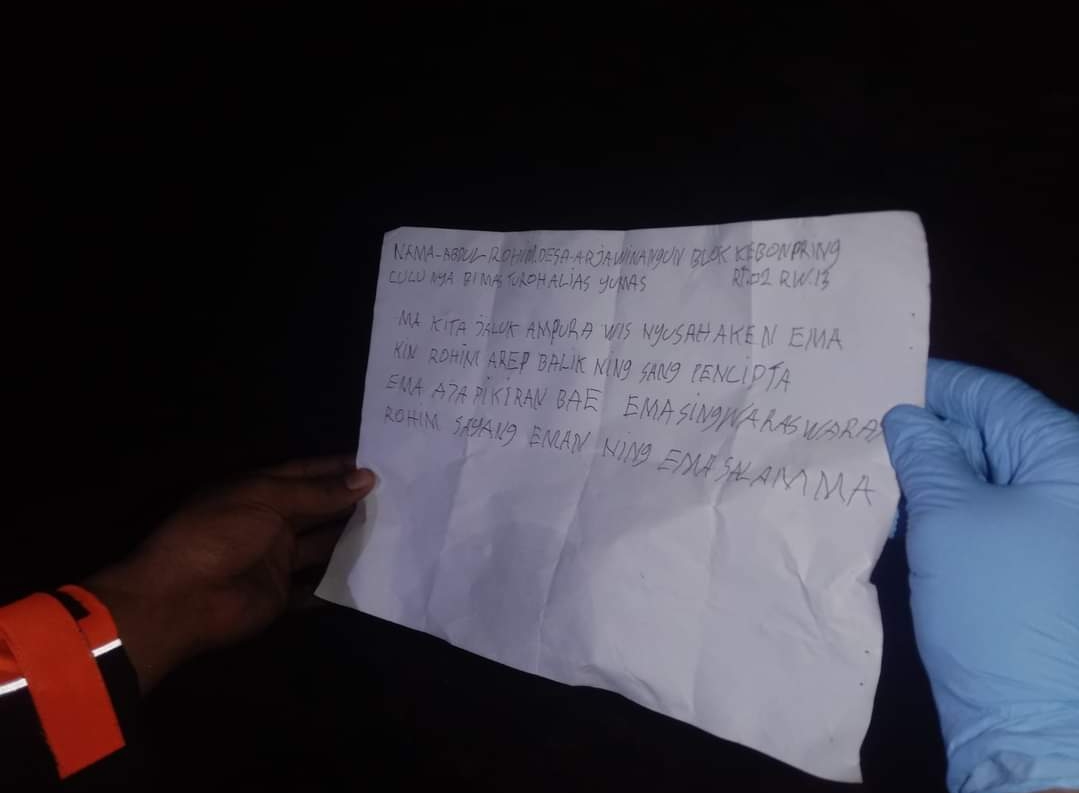 NAMA-ABDUL ROHIM.DESA-ARJAWINANGUN BLOK KEBONPRING
CUCU NYA BI MASTUROH ALIAS YUMAS RT.02 RW.13
MA KITA JALUK AMPURA WIS NYUSAHAKEN EMA
KIN ROHIM AREP BALIK NING SANG PENCIPTA
EMA AJA PIKIRAN BAE EMA SING WARAS WARAS
ROHIM SAYANG EMAN NING EMA SALAM MA